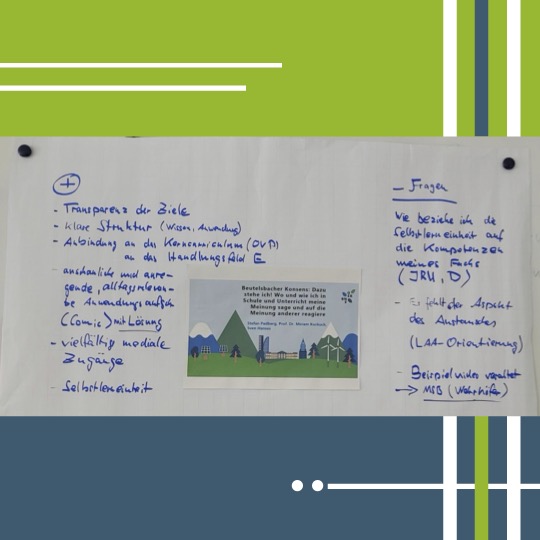 +
- Transparenz der Ziele
- klare Struktur (Wissen, Anwendung)
- Anbindung an das Kerncurriculum (OVP)
an das Handlungsfeld E
- anschauliche und anre-
gende, alltagsrelevan-
te Anwendungsaufgb
(Comic) mit Lösung
- vielfältig mediale
Zugänge
- Selbstlerneinheit
Beutelsbacher Konsens: Dazu
stehe ich! Wo und wie ich in
Schule und Unterricht meine
Meinung sage und auf die
Meinung anderer reagiere
- Fragen
Wie beziehe ich die
Selbstlerneinheit auf
die Kompetenzen
meines Fachs
(JRU, D)
- Es fehlt der Aspekt
des Austausches
(LAA-Orientierung)
- Beispielvideo veraltet
→ MSB (Wahrhafer)